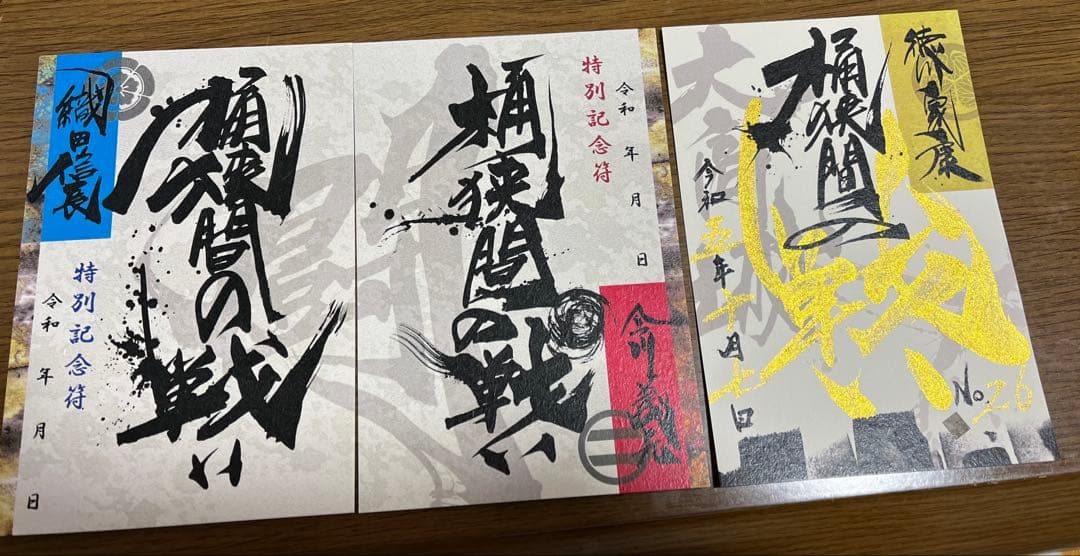 織田信長
桶狭間の戦い
特別記念符
令和 年 月 日
桶狭間の戦い
特別記念符
令和 年 月 日
今川義元
徳川家康
桶狭間の
戦い
大高城
令和五年十月七日
No.26